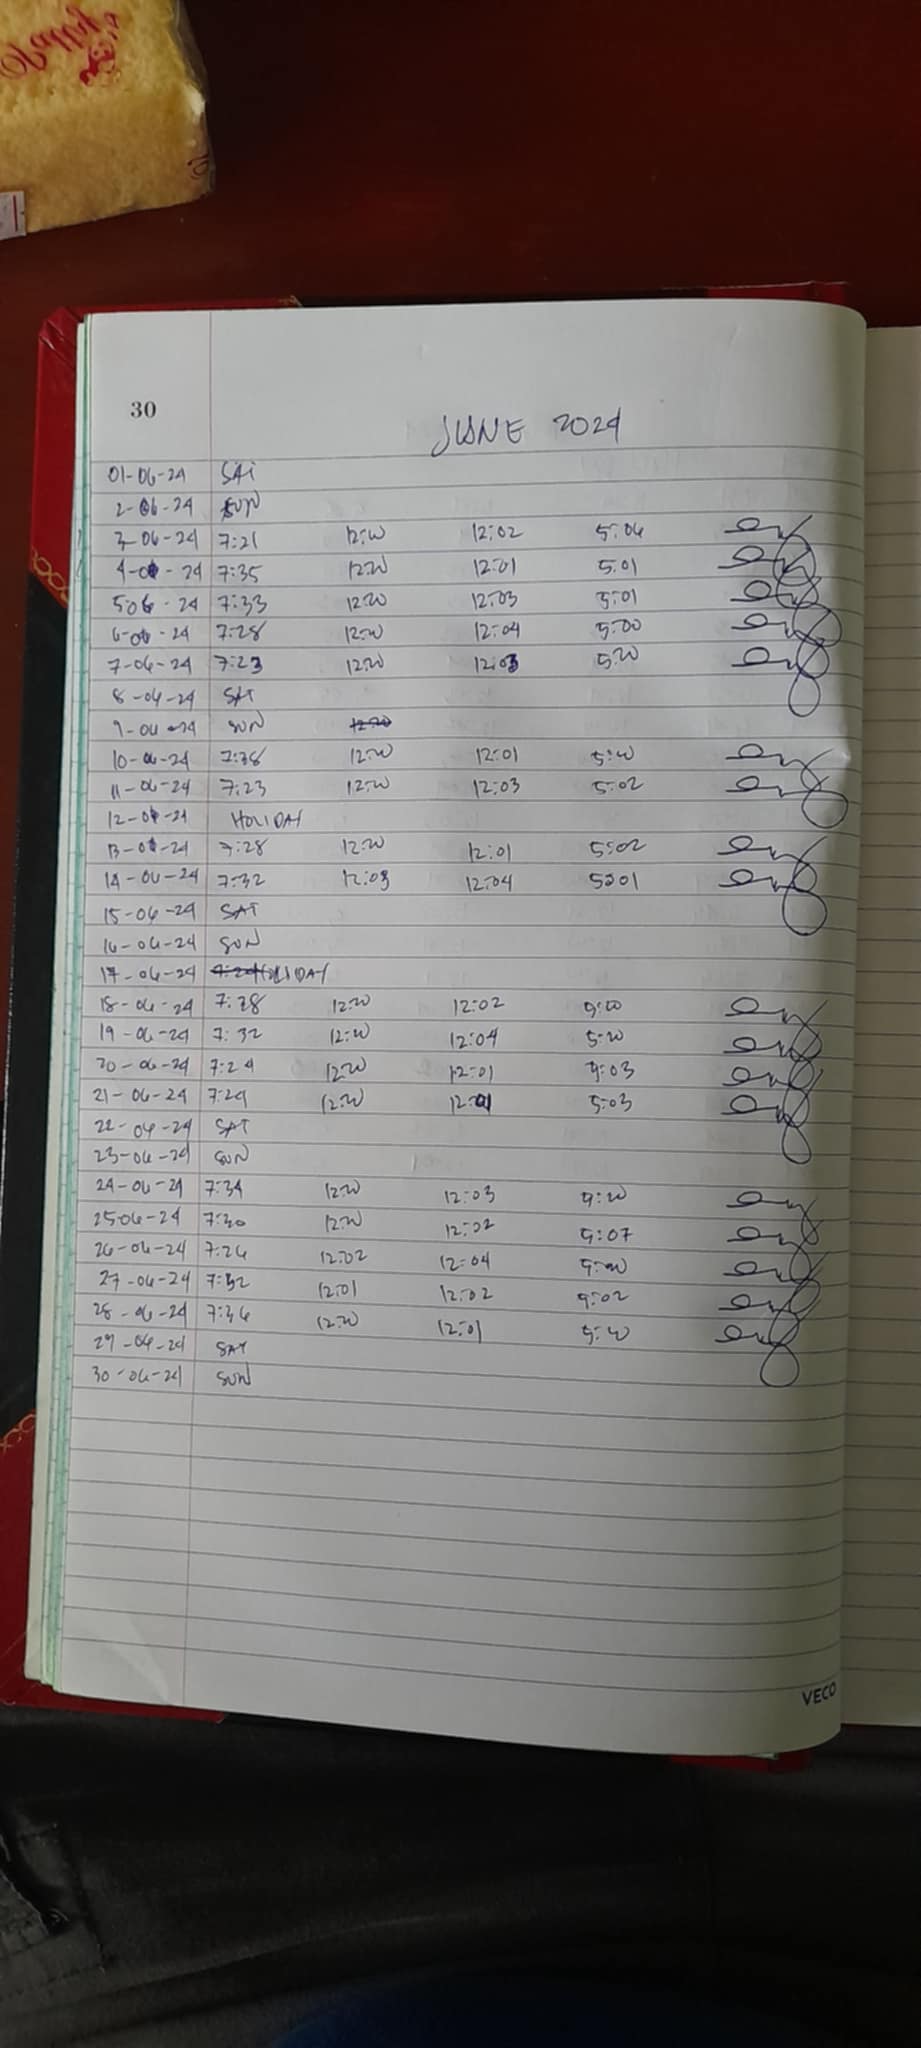 30
JUNE 2024
01-06-24 SAT
2-06-24 SUN
3-06-24 7:21 12:00 12:02 5:06
4-06-24 7:35 12:00 12:01 5:01
5-06-24 7:33 12:00 12:03 5:01
6-06-24 7:28 12:00 12:04 5:00
7-06-24 7:23 12:00 12:03 5:00
8-06-24 SAT
9-06-24 SUN 12:00
10-06-24 7:28 12:00 12:01 5:00
11-06-24 7:23 12:00 12:03 5:02
12-06-24 HOLIDAY
13-06-24 7:28 12:00 12:01 5:02
14-06-24 7:32 12:03 12:04 5:01
15-06-24 SAT
16-06-24 SUN
17-06-24 HOLIDAY
18-06-24 7:28 12:00 12:02 5:00
19-06-24 7:32 12:00 12:04 5:00
20-06-24 7:24 12:00 12:01 5:03
21-06-24 7:29 12:00 12:01 5:03
22-06-24 SAT
23-06-24 SUN
24-06-24 7:34 12:00 12:03 5:00
25-06-24 7:30 12:00 12:02 5:07
26-06-24 7:26 12:02 12:04 5:00
27-06-24 7:32 12:01 12:02 5:02
28-06-24 7:36 12:00 12:01 5:00
29-06-24 SAT
30-06-24 SUN
VECO